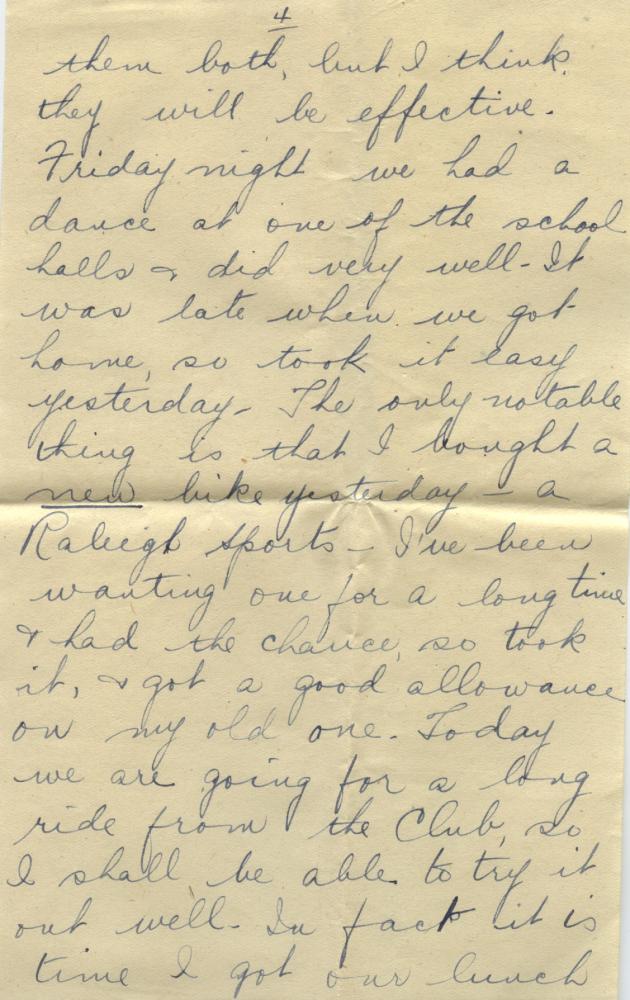 4
them both, but I think
they will be effective.
Friday night we had a
dance at one of the school
halls & did very well - It
was late when we got
home, so took it easy
yesterday - The only notable
thing is that I bought a
new bike yesterday - a
Raleigh sports - I've been
wanting one for a long time
& had the chance, so took
it, & got a good allowance
on my old one. Today
we are going for a long
ride from the Club, so
I shall be able to try it
out well. In fact it is
time I got our lunch